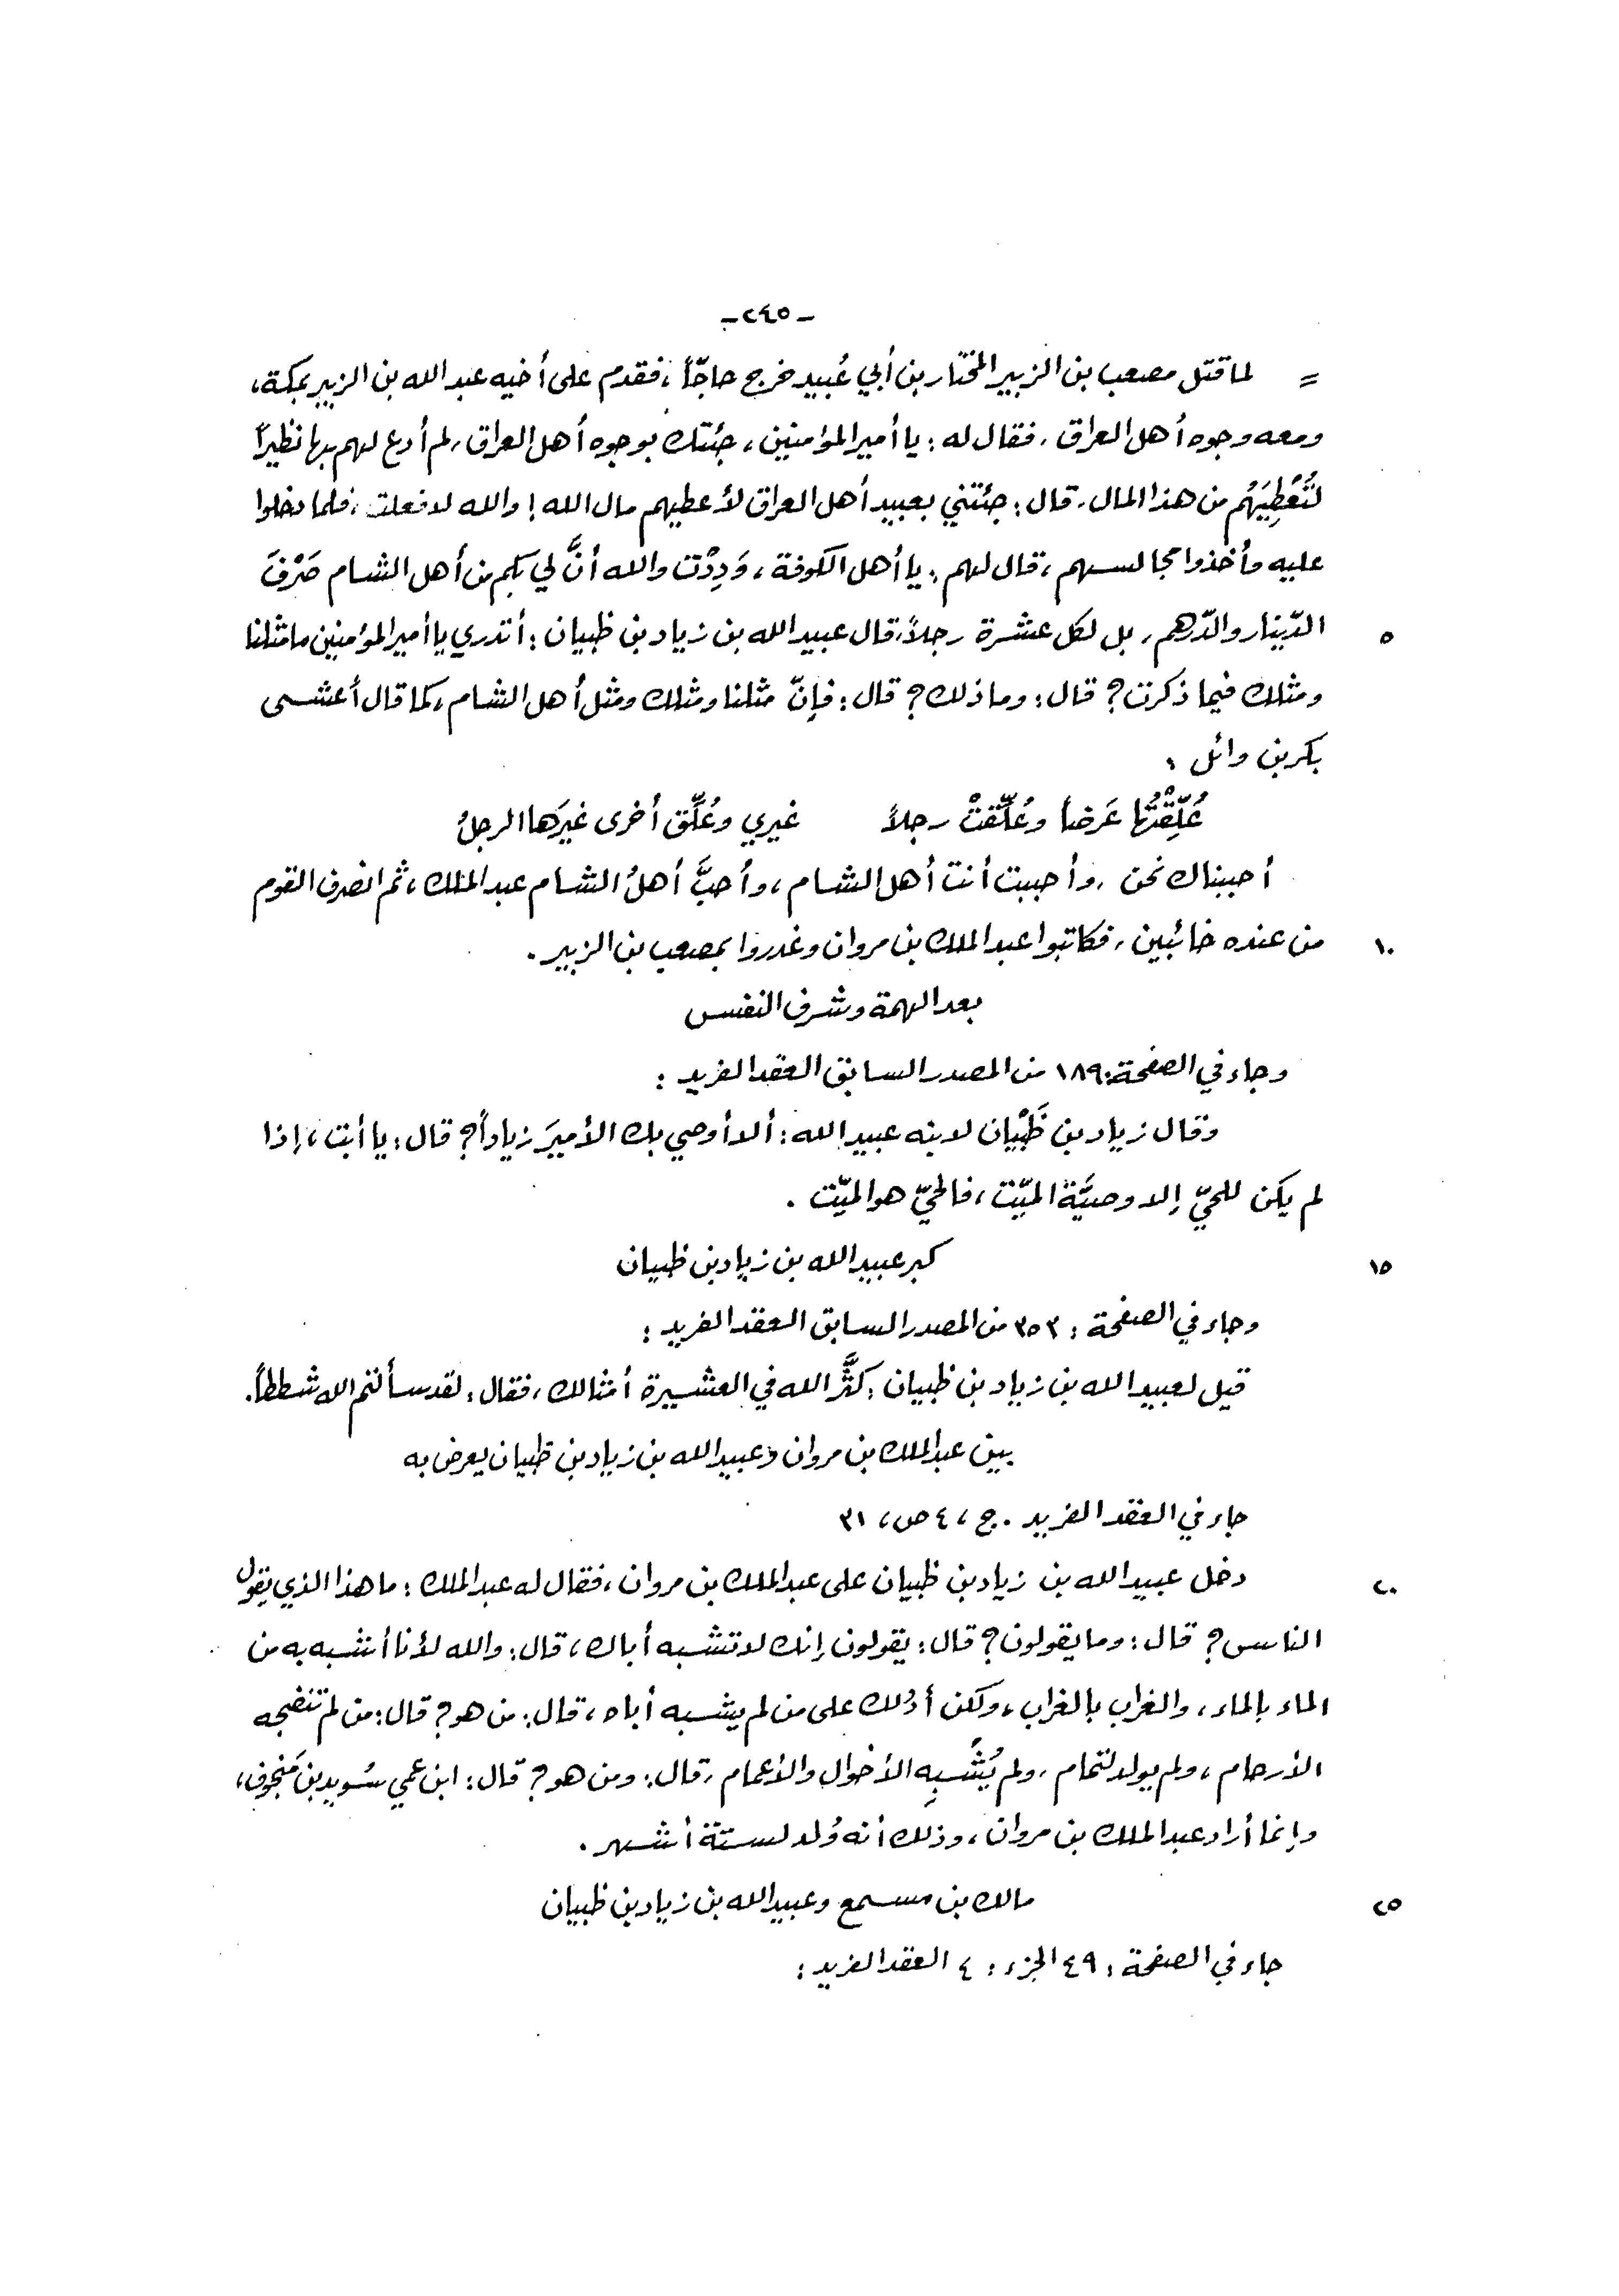 -٢٤٥-
= لما قتل مصعب بن الزبير المختار بن أبي عُبيد خرج حاجّاً، فقدم على أخيه عبد الله بن الزبير بمكة،
ومعه وجوه أهل العراق، فقال له: يا أمير المؤمنين، جئتك بوجوه أهل العراق، لم أدع لهم بها نظيراً
لتُعْطِيَهُم من هذا المال، قال: جئتني بعبيد أهل العراق لأعطيهم مال الله! والله لا فعلت، فلما دخلوا
عليه وأخذوا مجالسهم، قال لهم: يا أهل الكوفة، وَدِدْتُ والله أنَّ لي بكم من أهل الشام صَرْفَ
٥ الدّينار والدّرهم، بل لكل عشرة رجلاً، قال عبيد الله بن زياد بن ظبيان: أتدري يا أمير المؤمنين ما مثلنا
ومثلك فيما ذكرت؟ قال: وما ذلك؟ قال: فإنّ مثلنا ومثلك ومثل أهل الشام، كما قال أعشى
بكر بن وائل:
عُلِّقْتُها عَرضاً وعُلِّقتْ رجلاً غيري وعُلِّق أخرى غيرَها الرجلُ
أحببناك نحن، وأحببت أنت أهل الشام، وأحبَّ أهلُ الشام عبد الملك، ثم انصرف القوم
١٠ من عنده خائبين، فكاتبوا عبد الملك بن مروان وغدروا بمصعب بن الزبير.
بعد الهمة وشرف النفس
وجاء في الصفحة: ١٨٩ من المصدر السابق العقد الفريد:
وقال زياد بن ظَبْيان لابنه عبيد الله: ألا أوصي بك الأميرَ زياداً؟ قال: يا أبت، إذا
لم يكن للحيّ إلا وصيَّة الميّت، فالحيّ هو الميّت.
١٥ كبر عبيد الله بن زياد بن ظبيان
وجاء في الصفحة: ٣٥٣ من المصدر السابق العقد الفريد:
قيل لعبيد الله بن زياد بن ظبيان: كثَّر الله في العشيرة أمثالك، فقال: لقد سألتم الله شططاً.
بين عبد الملك بن مروان وعبيد الله بن زياد بن ظبيان يعرض به
جاء في العقد الفريد. ج، ٤ ص، ٣١
٢٠ دخل عبيد الله بن زياد بن ظبيان على عبد الملك بن مروان، فقال له عبد الملك: ما هذا الذي يقول
الناس؟ قال: وما يقولون؟ قال: يقولون إنك لا تشبه أباك، قال: والله لأنا أشبه به من
الماء بالماء، والغراب بالغراب، ولكن أدُلك على من لم يشبه أباه، قال: من هو؟ قال: من لم تنضجه
الأرحام، ولم يولد لتمام، ولم يُشْبِهِ الأخوال والأعمام، قال: ومن هو؟ قال: ابن عمي سُويد بن مَنجوف،
وإنما أراد عبد الملك بن مروان، وذلك أنه وُلد لستة أشهر.
٢٥ مالك بن مسمع وعبيد الله بن زياد بن ظبيان
جاء في الصفحة: ٤٩ الجزء: ٤ العقد الفريد: